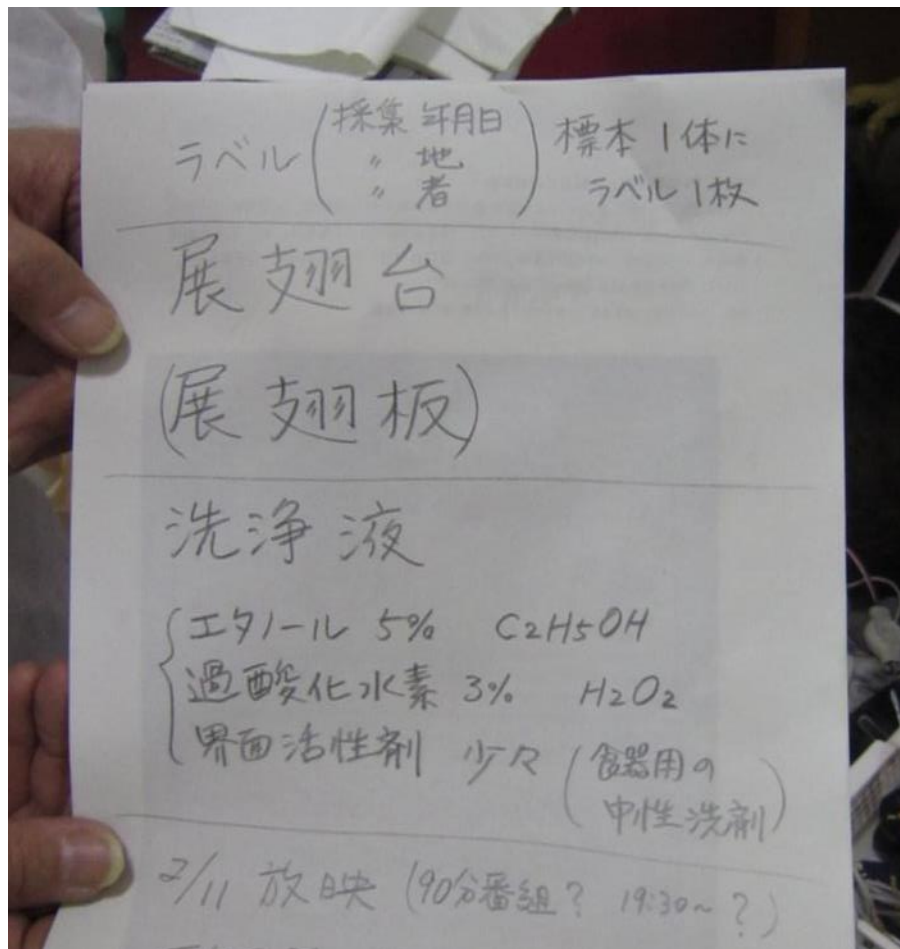 ラベル (採集 年月日 標本 1体に
〃 地
〃 者) ラベル 1枚
展翅台
(展翅板)
洗浄液
エタノール 5% C2H5OH
過酸化水素 3% H2O2
界面活性剤 少々 (食器用の
中性洗剤)
2/11 放映 (90分番組? 19:30~?)